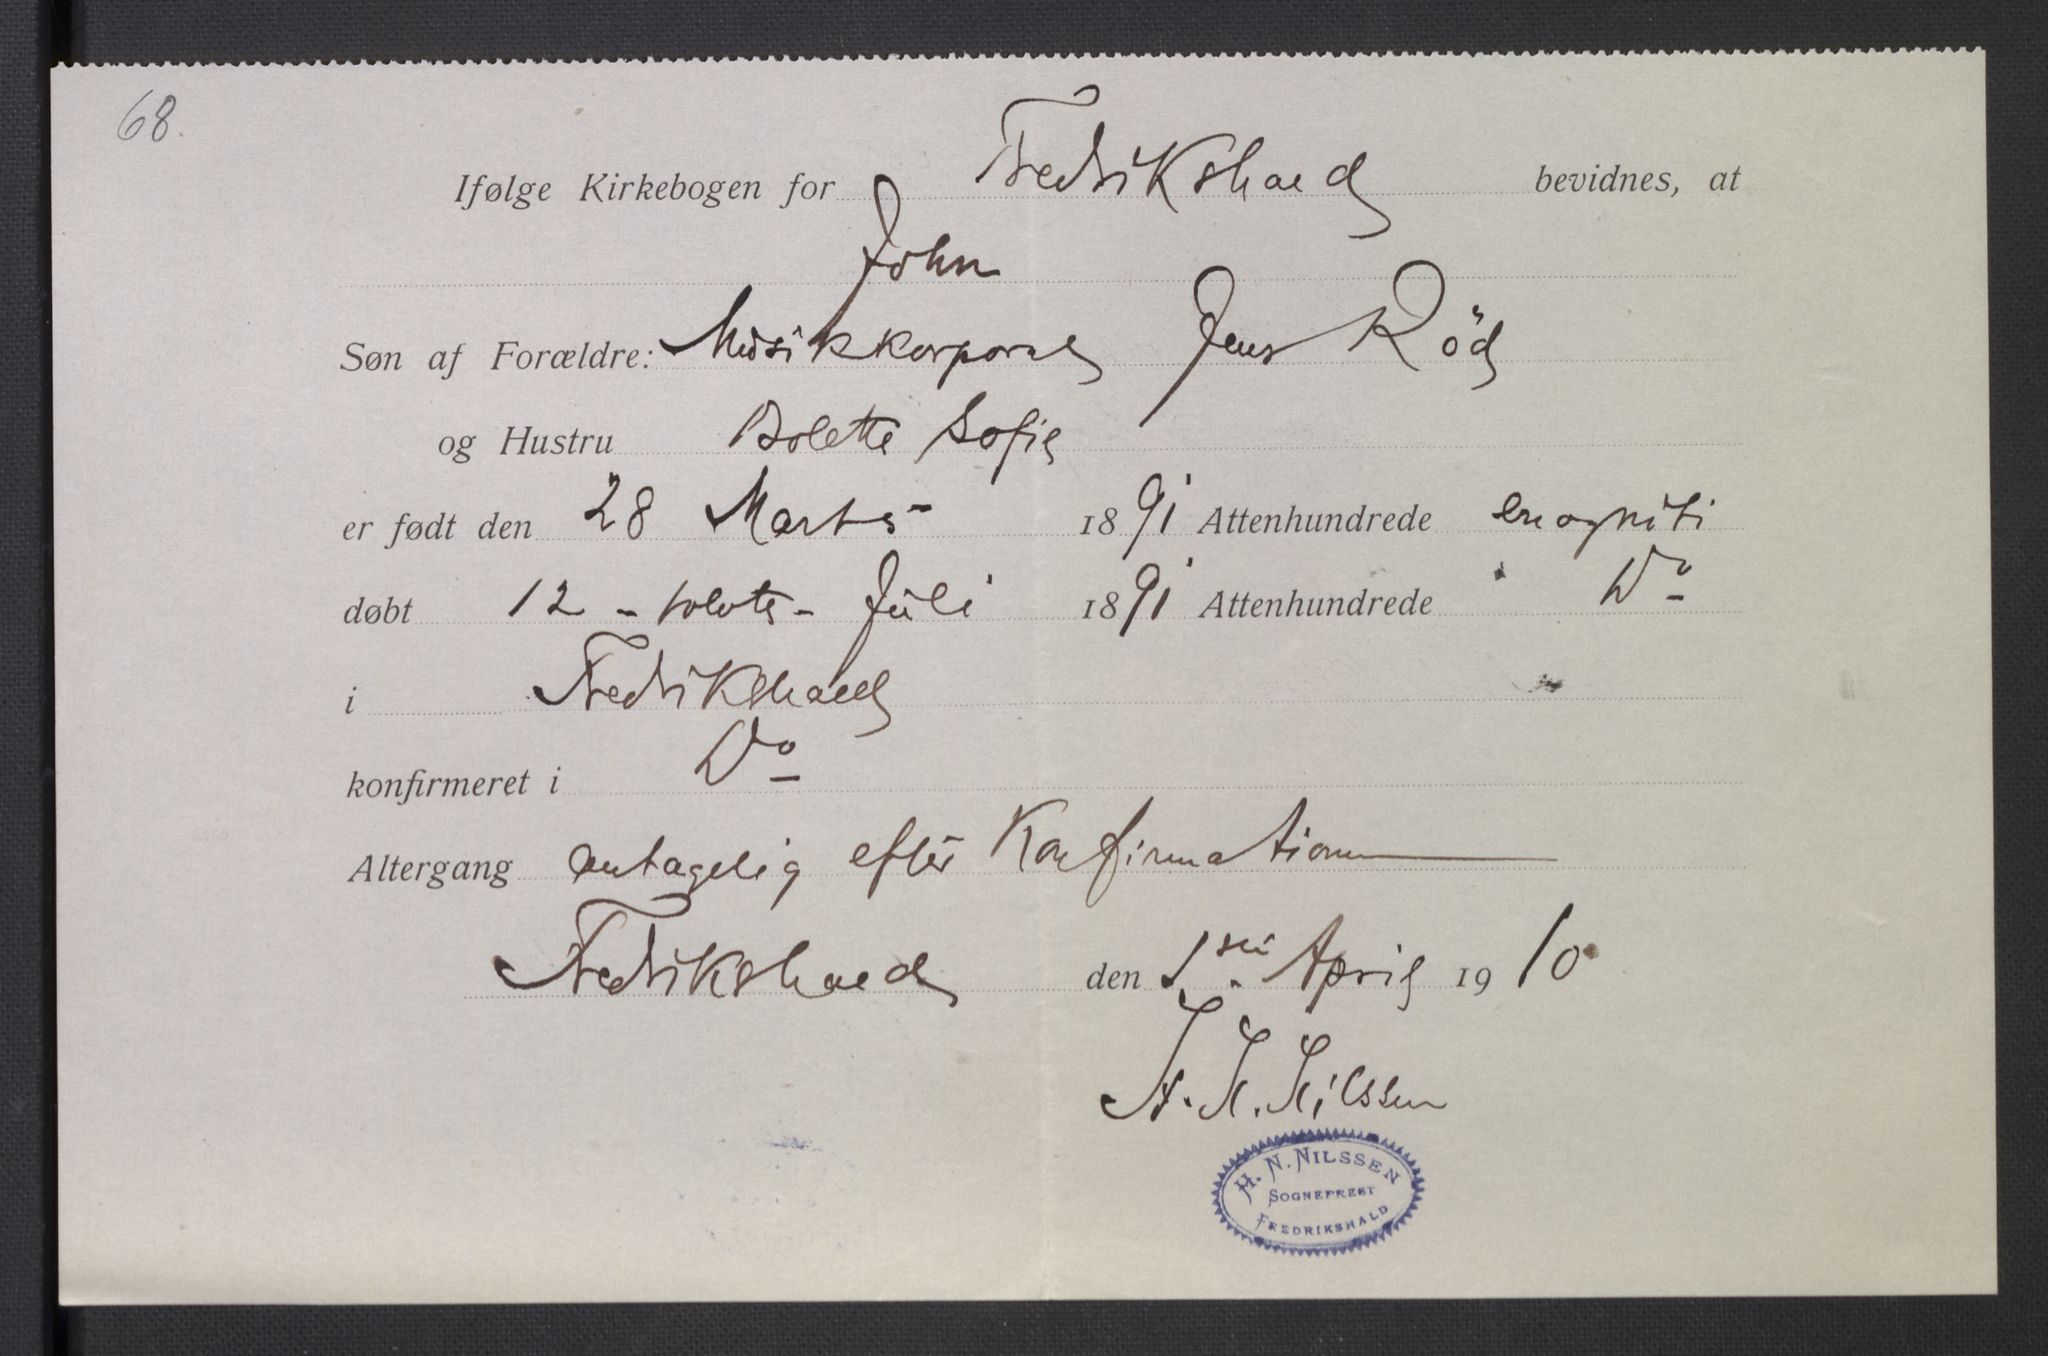 68.
Ifølge Kirkebogen for Fredrikshald bevidnes, at
John
Søn af Forældre: Musikkorporal Jens Röd
og Hustru Bolette Sofie
er født den 28 Marts 1891 Attenhundrede enognitti
døbt 12 - tolvte - Juli 1891 Attenhundrede Do
i Fredrikshald
konfirmeret i Do
Altergang antagelig efter Konfirmationen
Fredrikshald den 1ste April 1910
H. N. Nilssen
H. N. NILSSEN
SOGNEPREST
FREDRIKSHALD